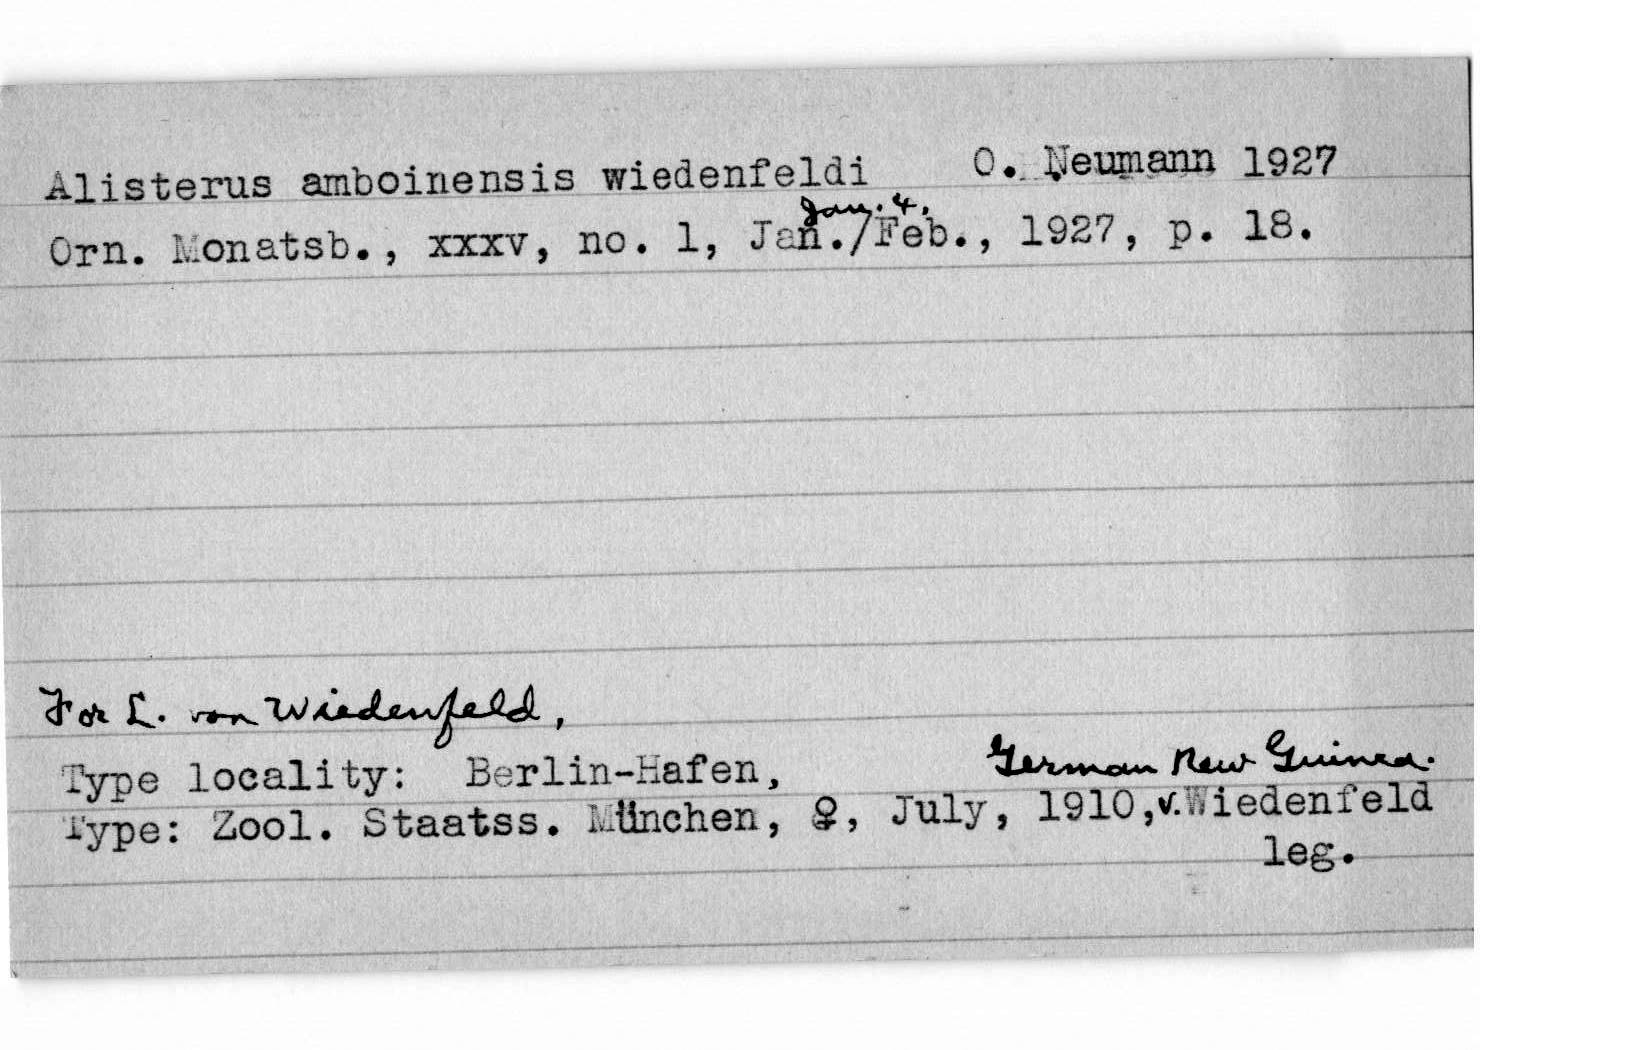 Alisterus amboinensis wiedenfeldi O. Neumann 1927
Jan. 4,
Orn. Monatsb., xxxv, no. 1, Jan./Feb., 1927, p. 18.
For L. von Wiedenfeld,
Type locality: Berlin-Hafen, German New Guinea.
Type: Zool. Staatss. München, ♀, July, 1910, v. Wiedenfeld
leg.